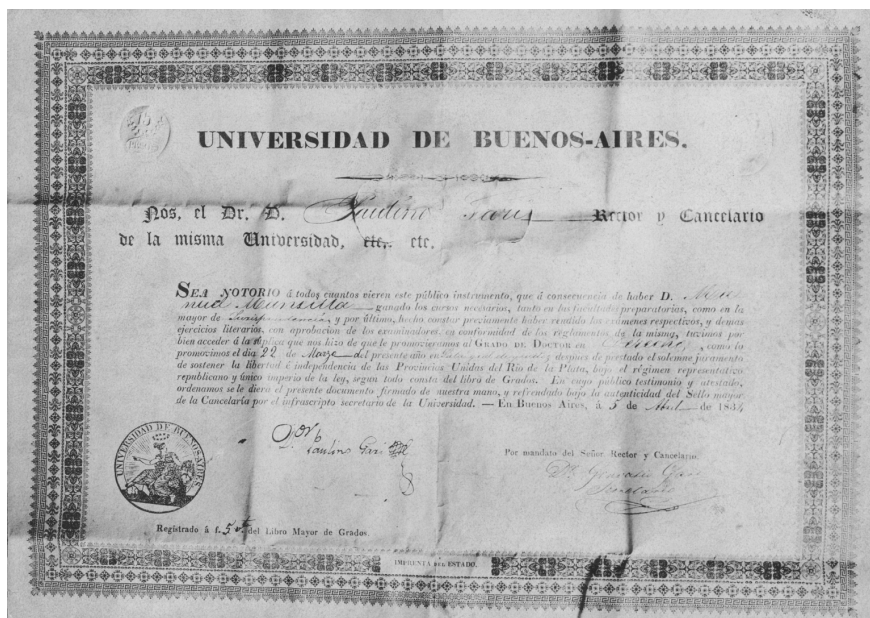 15
PESOS
UNIVERSIDAD DE BUENOS-AIRES.
Nós, el Dr. D. Paulino Gari Rector y Cancelario
de la misma Universidad, etc. etc.
SEA NOTORIO á todos cuantos vieren este público instrumento, que á consecuencia de haber D. Ma
nuel Mansilla ganado los cursos necesarios, tanto en las facultades preparatorias, como en la
mayor de Jurisprudencia y por último, hecho constar previamente haber rendido los exámenes respectivos, y demas
ejercicios literarios, con aprobacion de los examinadores, en conformidad de los reglamentos de la misma, tuvimos por
bien acceder á la súplica que nos hizo de que le promovieramos al GRADO DE DOCTOR en como lo
promovimos el dia 22 de Marzo del presente año en despues de prestado el solemne juramento
de sostener la libertad é independencia de las Provincias Unidas del Rio de la Plata, bajo el régimen representativo
republicano y único imperio de la ley, segun todo consta del libro de Grados. En cuyo público testimonio y atestado,
ordenamos se le diera el presente documento firmado de nuestra mano, y refrendado bajo la autenticidad del Sello mayor
de la Cancelaría por el infrascripto secretario de la Universidad. — En Buenos Aires, á 5 de Abril de 1834
UNIVERSIDAD DE BUENOS AIRES
Paulino Gari
Por mandato del Señor Rector y Cancelario.
Secretario
Registrado á f. 5 del Libro Mayor de Grados.
IMPRENTA DEL ESTADO.